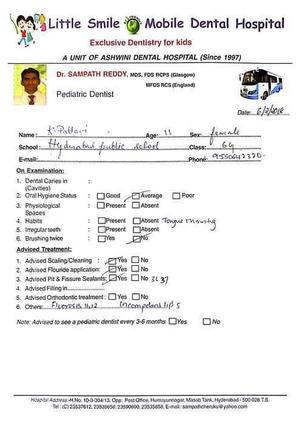 Little Smile Mobile Dental Hospital
Exclusive Dentistry for kids
A UNIT OF ASHWINI DENTAL HOSPITAL (Since 1997)
Dr. SAMPATH REDDY, MDS, FDS RCPS (Glasgow)
MFDS RCS (England)
Pediatric Dentist
Date: 6/2/2018
Name: K. Pallavi Age: 11 Sex: female
School: Hyderabad public school Class: 6G
E-mail: Phone:
On Examination:
1. Dental Caries in :
(Cavities)
2. Oral Hygiene Status : Good Average Poor
3. Physiological : Present Absent
Spaces
4. Habits : Present Absent Tongue thrusting
5. Irregular teeth : Present Absent
6. Brushing twice : Yes No
Advised Treatment:
1. Advised Scaling/Cleaning : Yes No
2. Advised Flouride application: Yes No
3. Advised Pit & Fissure Sealants: Yes No
4. Advised Filling in
5. Advised Orthodontic treatment : Yes No
6. Others: Incompetent lips
Note: Advised to see a pediatric dentist every 3-6 months Yes No
Hospital Address:-H.No. 10-3-304/13, Opp. Post Office, Humayunnagar, Masab Tank, Hyderabad - 500 028 T.S.
Tel: (C) 23537612, 23535656, 23590690, 23535858, E-mail: sampathcheruku@yahoo.com